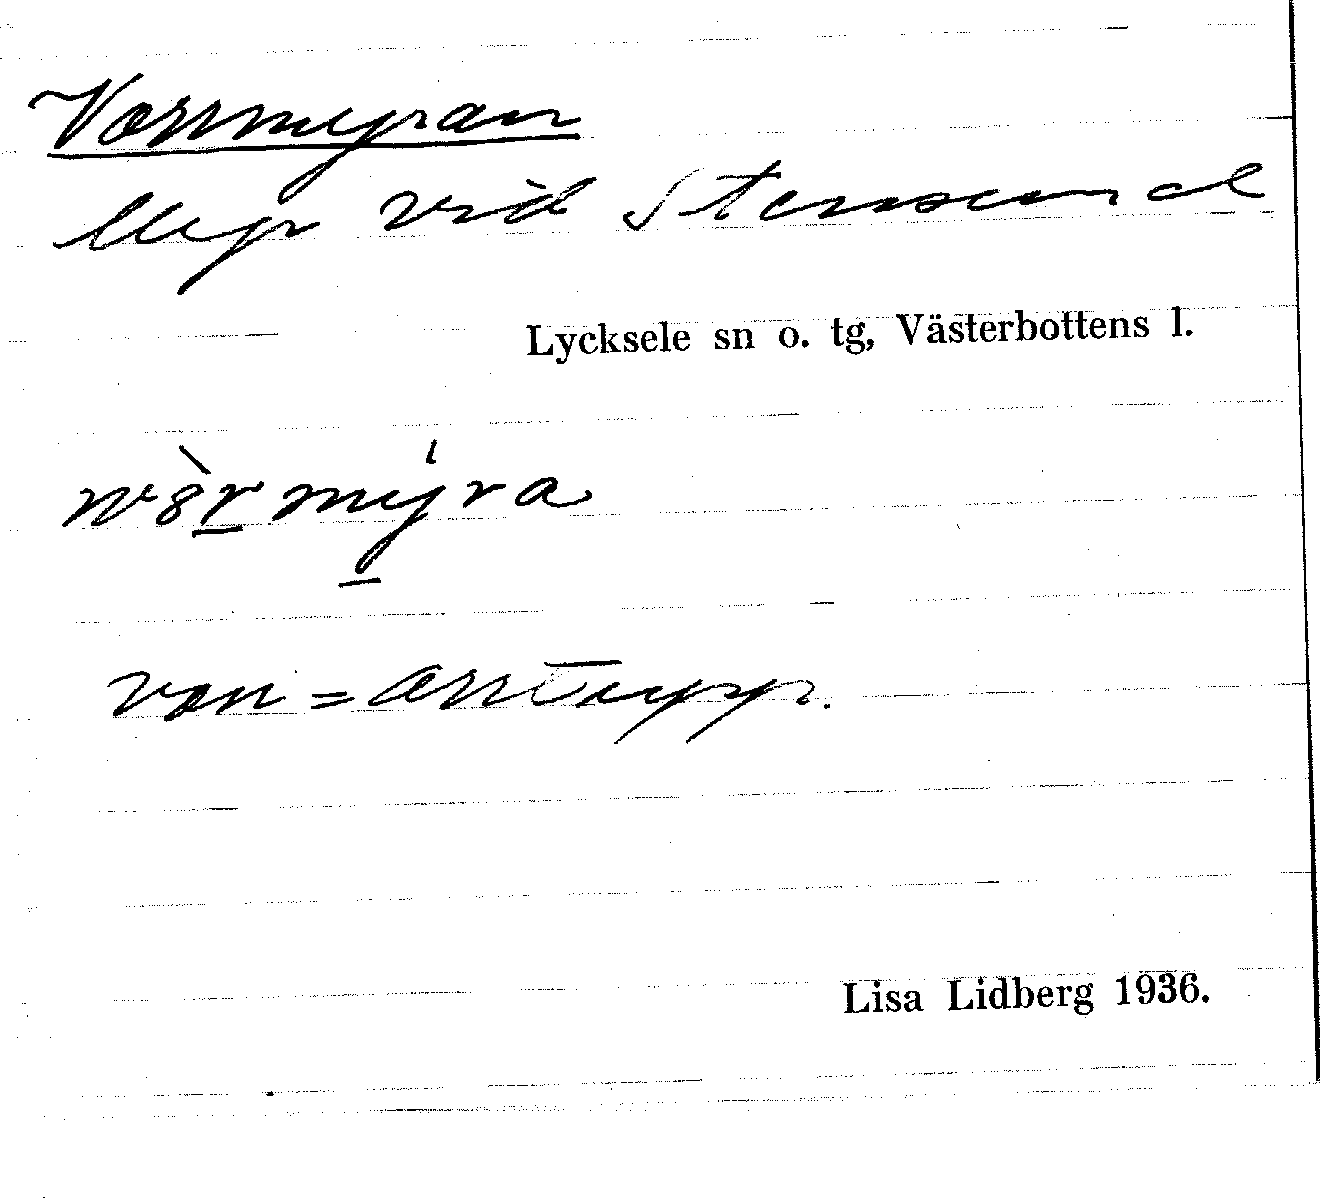 Vorrmyran
Myr vid Stensund
Lycksele sn o. tg, Västerbottens l.
vorr = orrtupp.
Lisa Lidberg 1936.